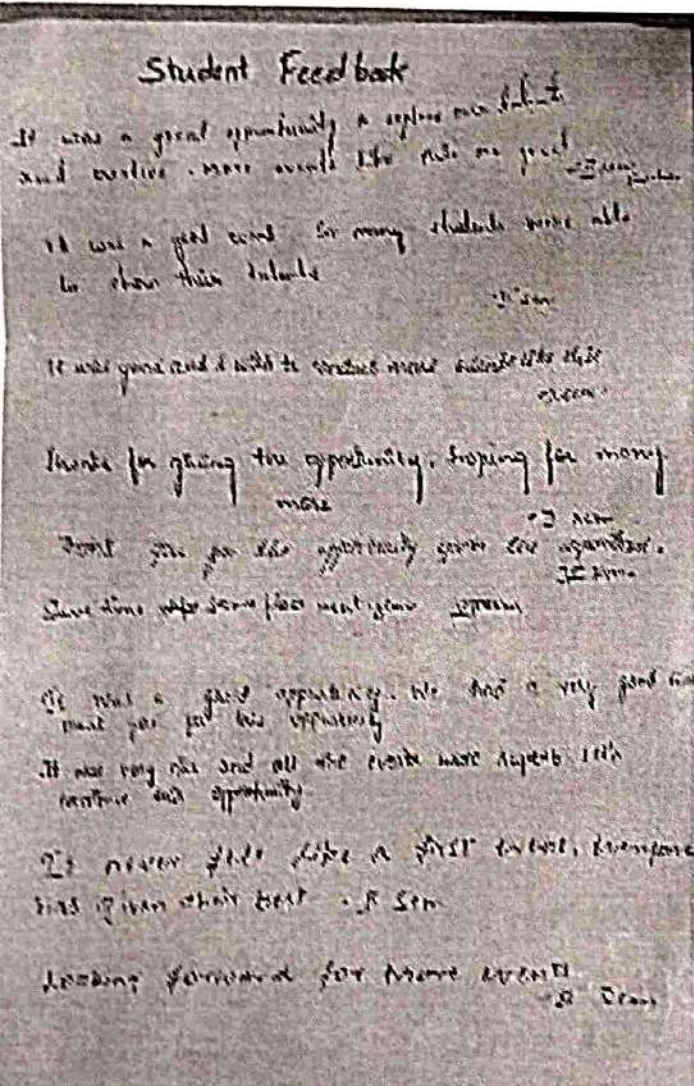 Student Feedback
It was a great opportunity to explore our talents
and creative. more events like this are great
It was a good event for many students were able
to show their talents
- II sem
It was good and I wish to conduct more events like this
Thanks for giving the opportunity, hoping for many
more
- I sem
you for the opportunity given
II sem
Same time same place next year
It was a good opportunity. We had a very good
you for this opportunity
It was very nice and all the events were superb let's
continue this opportunity
It never felt like a first event, everyone
has given their best - II Sem
Looking forward for more events
- II Sem